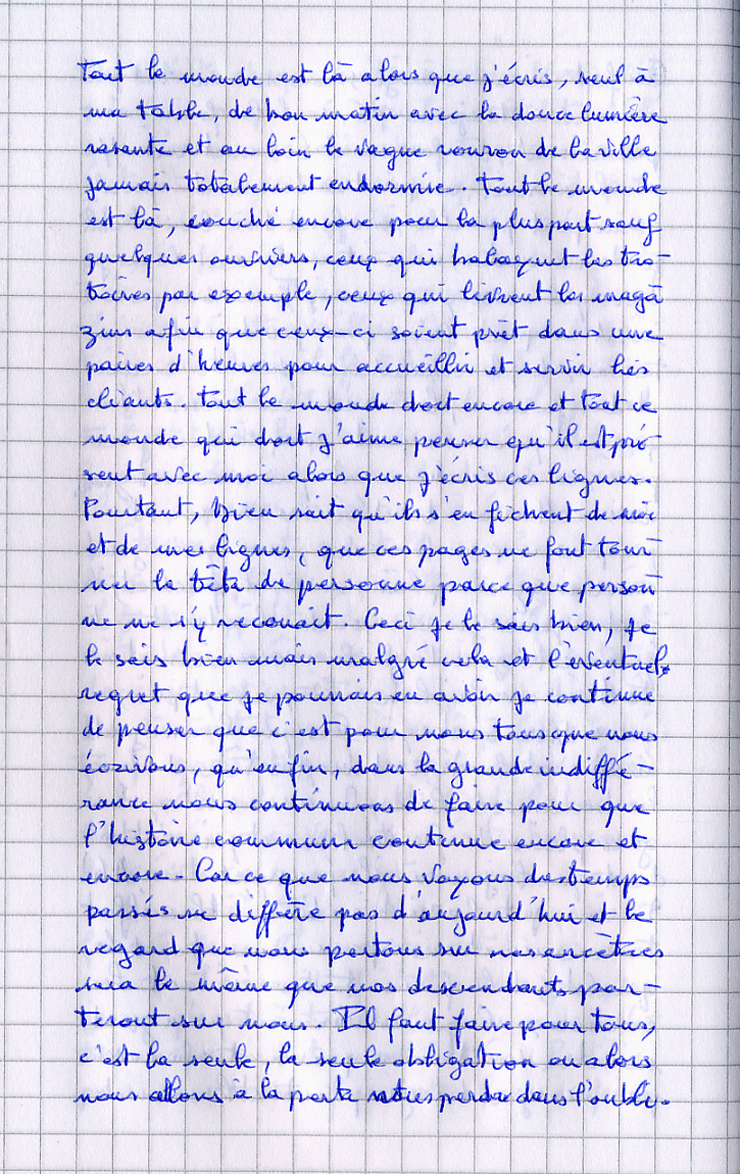 Tout le monde est là alors que j'écris, seul à
ma table, de bon matin avec la douce lumière
rasante et au loin le vague ronron de la ville
jamais totalement endormie. Tout le monde
est là, couché encore pour la plus part sauf
quelques ouvriers, ceux qui balayent les trot-
toires par exemple, ceux qui livrent les maga
zins afin que ceux-ci soient prêt dans une
paires d'heures pour accueillir et servir les
clients. Tout le monde dort encore et tout ce
monde qui dort j'aime penser qu'il est pré
sent avec moi alors que j'écris ces lignes.
Pourtant, bien sait qu'ils s'en fichent de moi
et de mes lignes, que ces pages ne font tour
ner la tête de personne parce que person
ne ne s'y reconait. Ceci je le sais bien, je
le sais bien mais malgré cela et l'éventuel
regret que je pourrais en avoir je continue
de penser que c'est pour nous tous que nous
écrivons, qu'enfin, dans la grande indiffé-
rance nous continuons de faire pour que
l'histoire commune continue encore et
encore. Car ce que nous voyons des temps
passés ne diffère pas d'aujourd'hui et le
regard que nous portons sur nos ancêtres
sera le même que nos descendants por-
teront sur nous. Il faut faire pour tous,
c'est la seule, la seule obligation ou alors
nous allons à la perte perdre dans l'oubli.